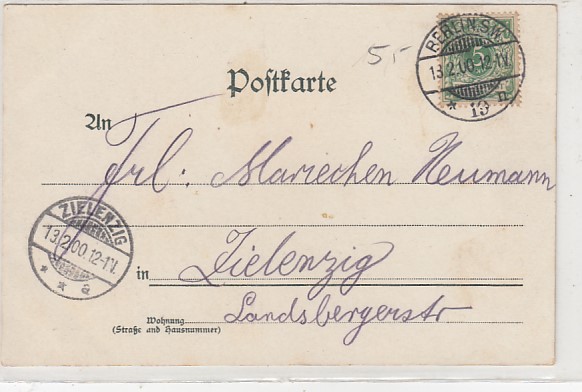 5,-
BERLIN.S.W.
13.2.00.12-1V.
* 19 n
5
Postkarte
An
Frl: Mariechen Neumann
ZIELENZIG
13.2.00.12-1V.
* * a
in Zielenzig
Wohnung
(Straße and Hausnummer)
Landsbergerstr